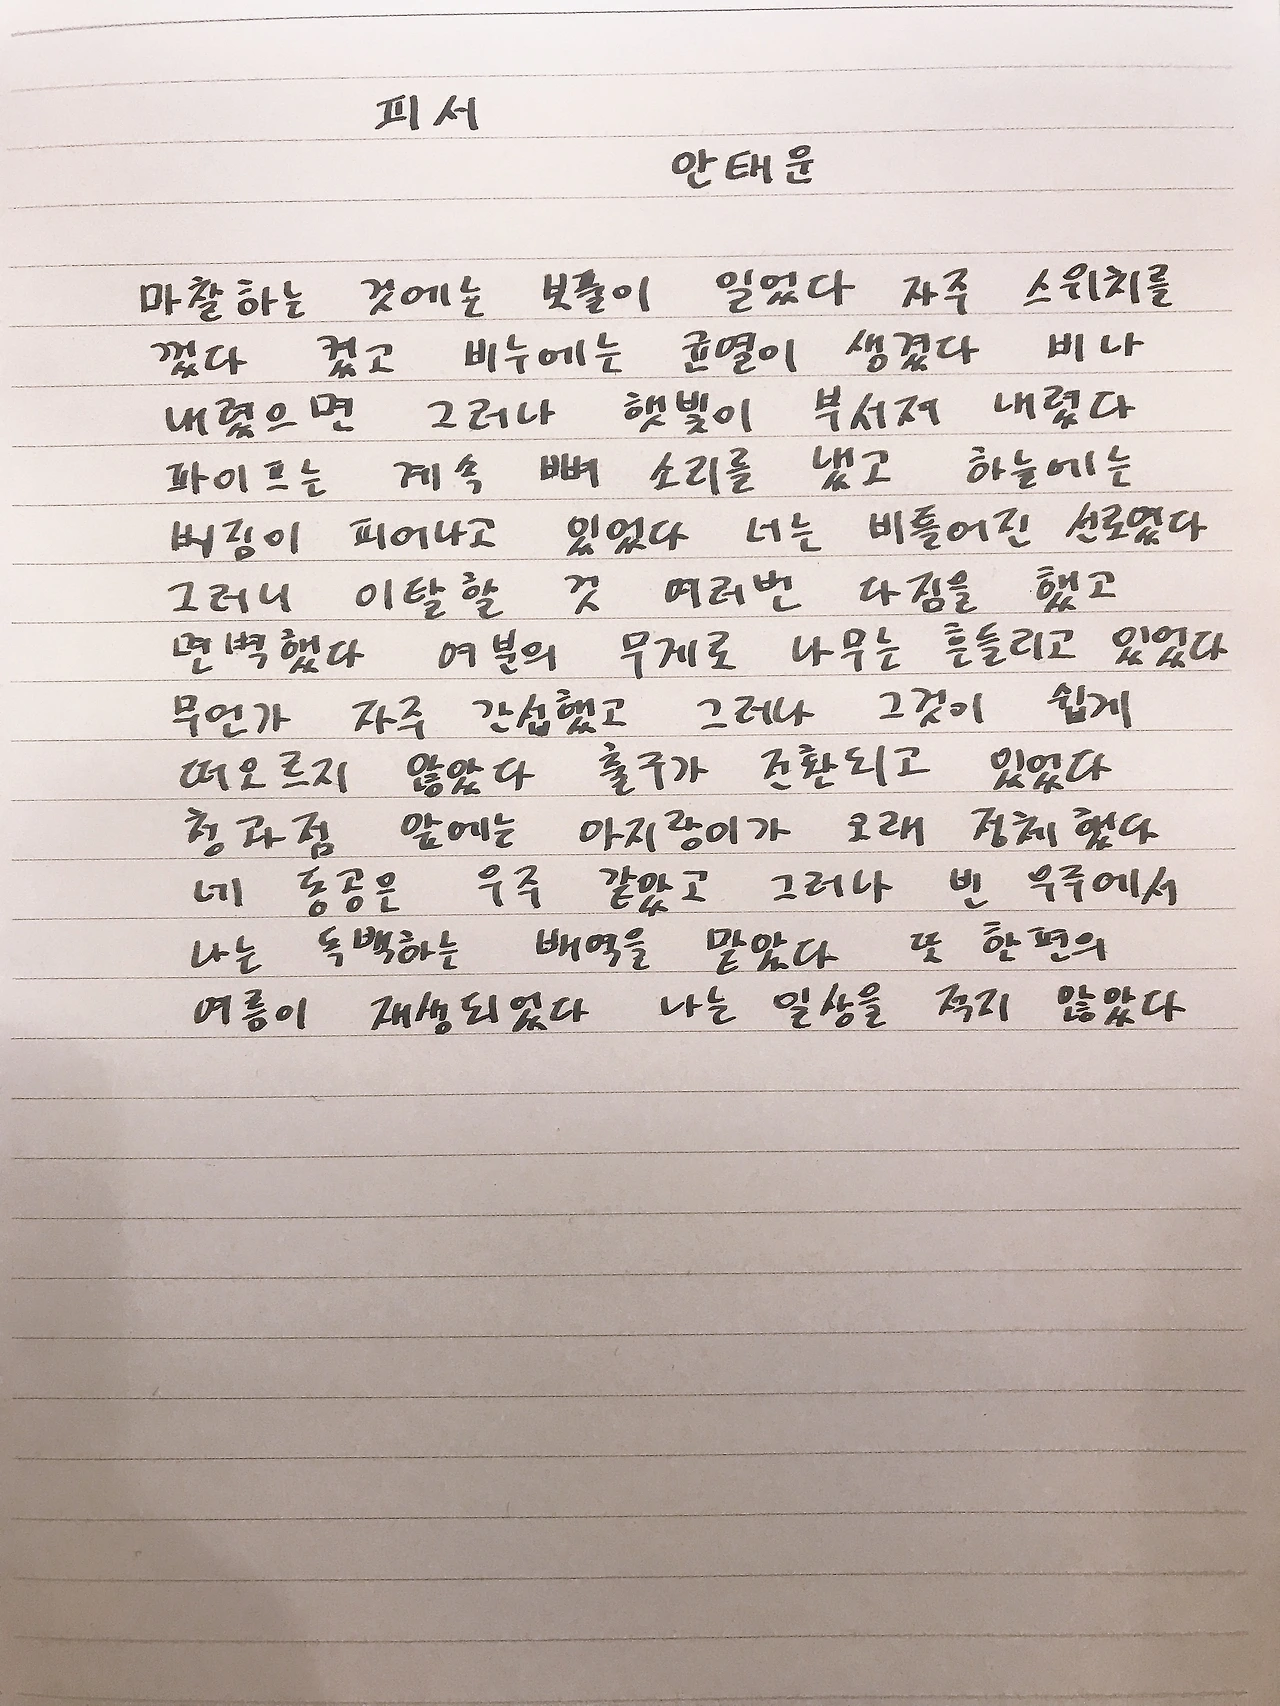 피서
안태운
마찰하는 것에는 보풀이 일었다 자주 스위치를
껐다 켰고 비누에는 균열이 생겼다 비나
내렸으면 그러나 햇빛이 부서져 내렸다
파이프는 계속 뼈 소리를 냈고 하늘에는
버짐이 피어나고 있었다 너는 비틀어진 선로였다
그러니 이탈할 것 여러번 다짐을 했고
면벽했다 여분의 무게로 나무는 흔들리고 있었다
무언가 자주 간섭했고 그러나 그것이 쉽게
떠오르지 않았다 출구가 전환되고 있었다
청과점 앞에는 아지랑이가 오래 정체했다
네 동공은 우주 같았고 그러나 빈 우주에서
나는 독백하는 배역을 맡았다 또 한편의
여름이 재생되었다 나는 일상을 적지 않았다